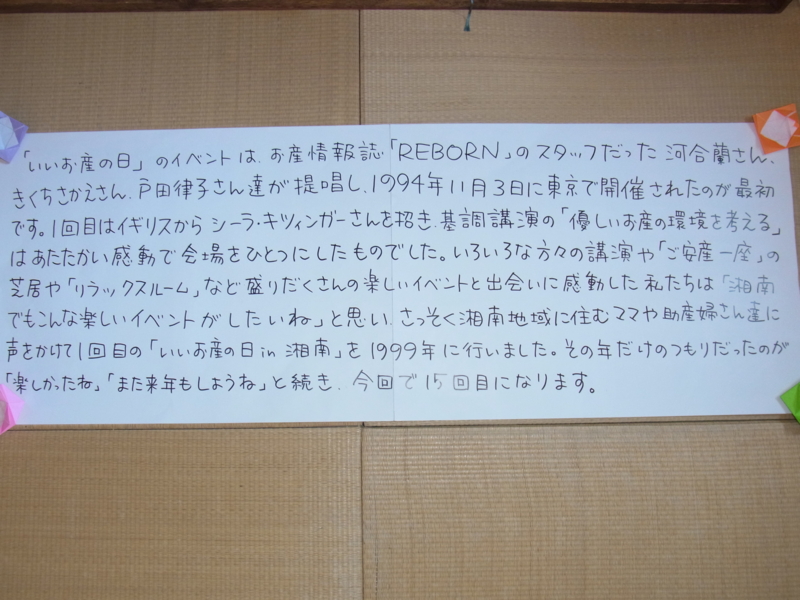 「いいお産の日」のイベントは、お産情報誌「REBORN」のスタッフだった河合蘭さん、
きくちさかえさん、戸田律子さん達が提唱し、1994年11月3日に東京で開催されたのが最初
です。1回目はイギリスからシーラ・キツィンガーさんを招き、基調講演の「優しいお産の環境を考える」
はあたたかい感動で会場をひとつにしたものでした。いろいろな方々の講演や「ご安産一座」の
芝居や「リラックスルーム」など盛りだくさんの楽しいイベントと出会いに感動した私たちは「湘南
でもこんな楽しいイベントがしたいね」と思い、さっそく湘南地域に住むママや助産婦さん達に
声をかけて1回目の「いいお産の日in湘南」を1999年に行いました。その年だけのつもりだったのが
「楽しかったね」「また来年もしようね」と続き、今回で15回目になります。